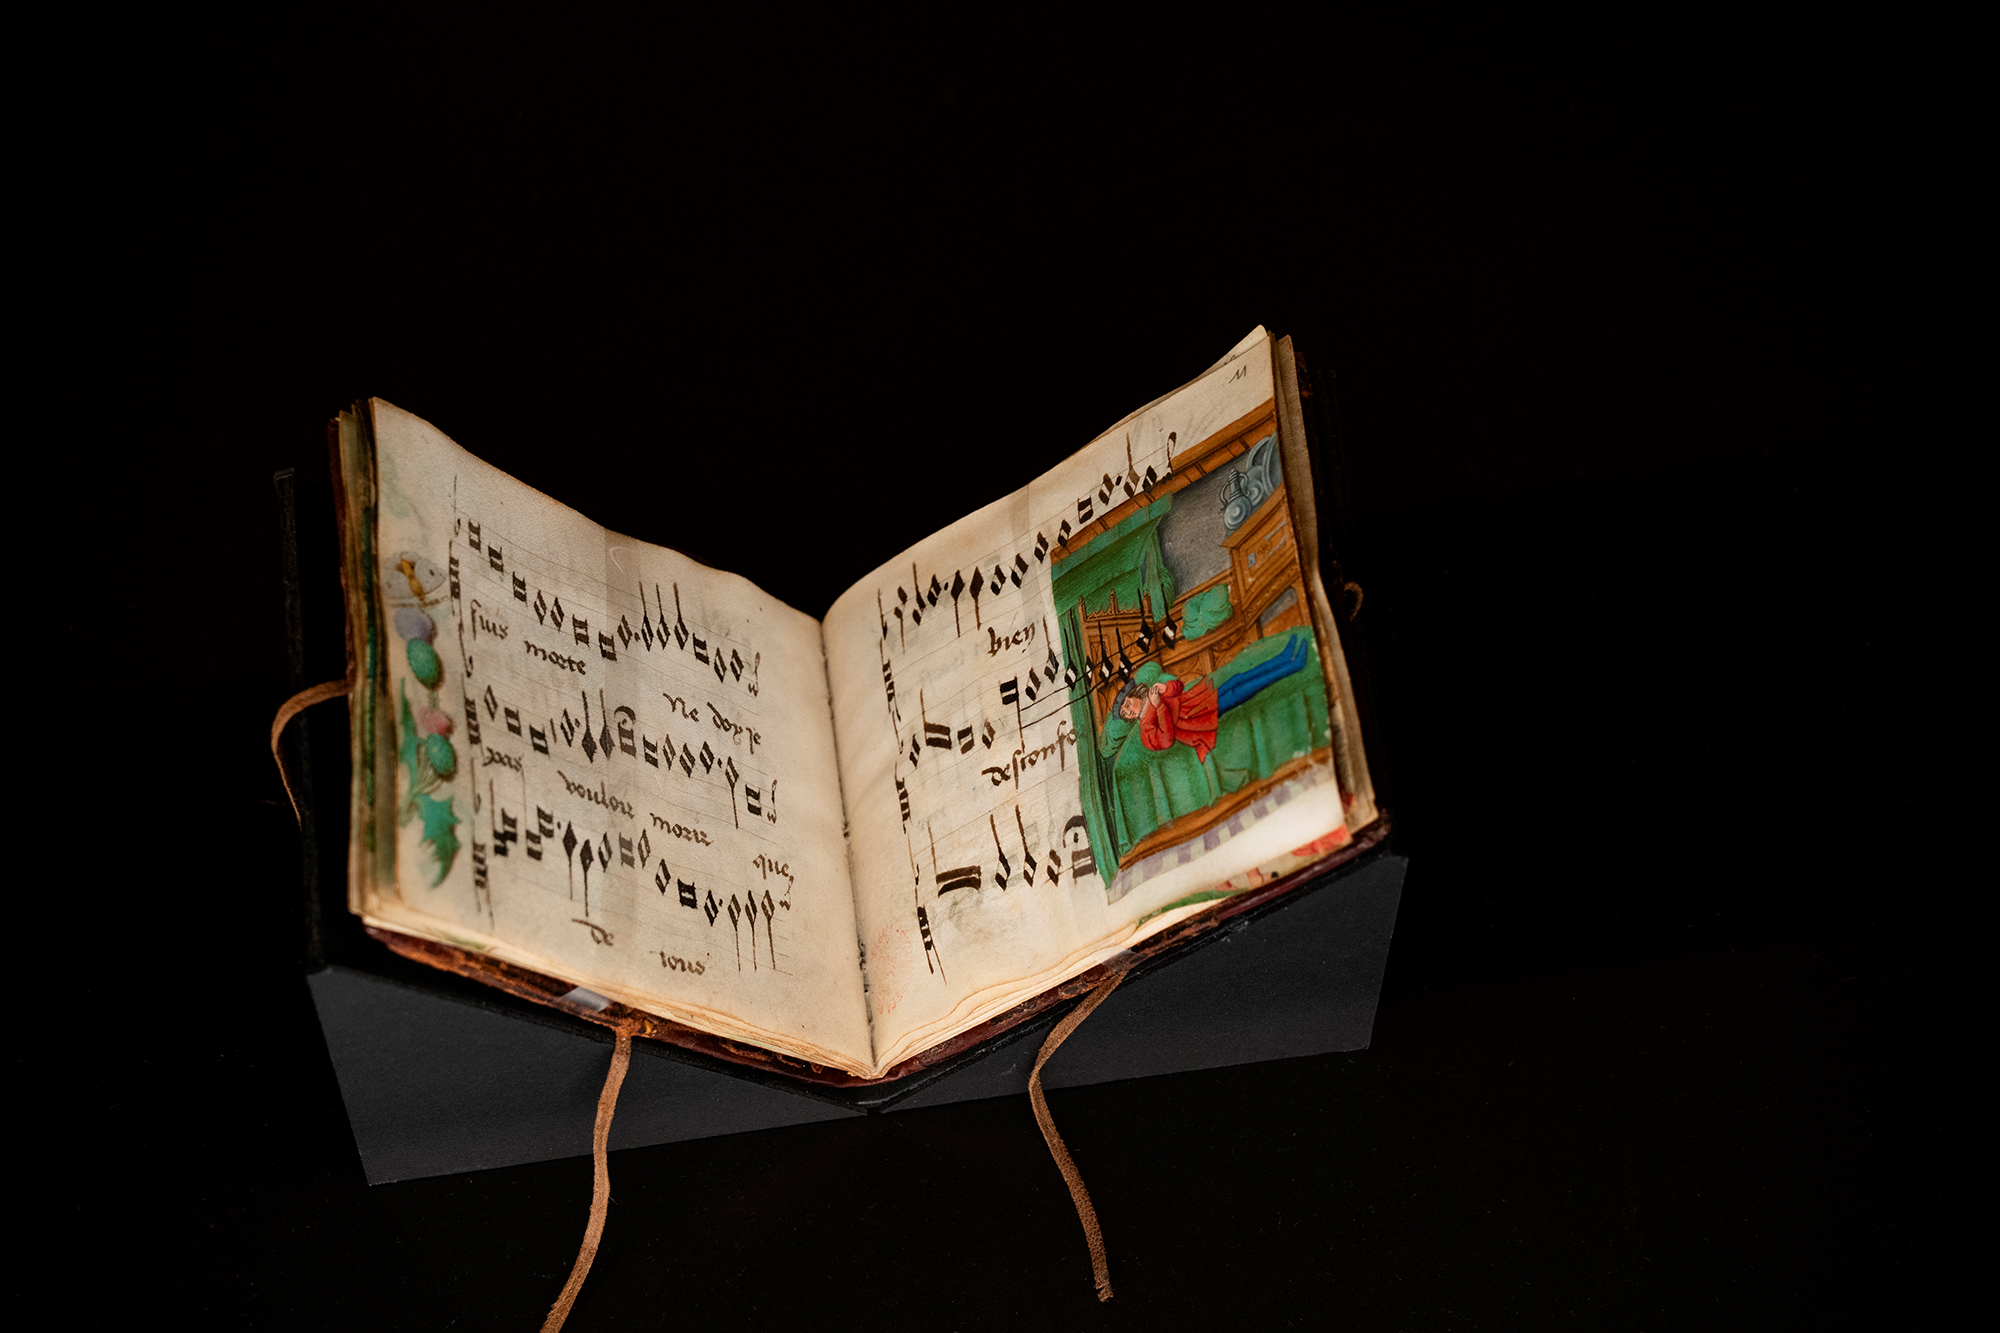 suis morte Ne doy je
pas vouloir morir que
de tous
11
bien
desconfo